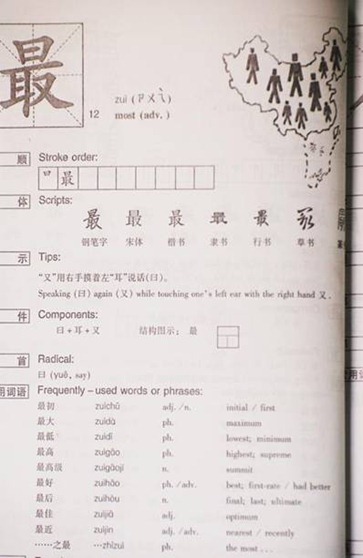 最
zuì (ㄗㄨㄟˋ)
12 most (adv.)
顺 Stroke order:
最
体 Scripts:
最 最 最 最 最
钢笔字 宋体 楷书 隶书 行书 草书
示 Tips:
“又”用右手摸着左“耳”说话(曰)。
Speaking (曰) again (又) while touching one's left ear with the right hand 又.
件 Components:
曰+耳+又 结构图示: 最
首 Radical:
曰 (yuē, say)
用词语 Frequently–used words or phrases:
最初 zuìchū adj. /n. initial / first
最大 zuìdà ph. maximum
最低 zuìdī ph. lowest; minimum
最高 zuìgāo ph. highest; supreme
最高级 zuìgāojí n. summit
最好 zuìhǎo ph. /adv. best; first-rate / had better
最后 zuìhòu n. final; last; ultimate
最佳 zuìjiā adj. optimum
最近 zuìjìn adj. /adv. nearest / recently
……之最 …zhīzuì ph. the most ...